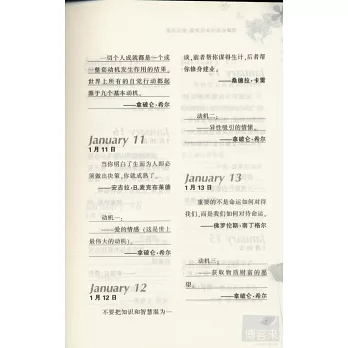 一切个人成就都是一个或
一整套动机发生作用的结果。
世界上所有的自觉行动都起
源于九个基本动机。
——拿破仑·希尔
January 11
1月11日
当你明白了生而为人即必
须做出决策，你就成熟了。
——安吉拉·B.麦克布莱德
动机一：
——爱的情感（这是世上
最伟大的动机）。
——拿破仑·希尔
January 12
1月12日
不要把知识和智慧混为一
谈，前者帮你谋得生计，后者帮
你修身建业。
——桑德拉·卡里
动机二：
——异性吸引的情愫。
——拿破仑·希尔
January 13
1月13日
重要的不是命运如何对待
我们，而是我们如何对待命运。
——佛罗伦斯·南丁格尔
动机三：
——获取物质财富的愿
望。
——拿破仑·希尔
博客来